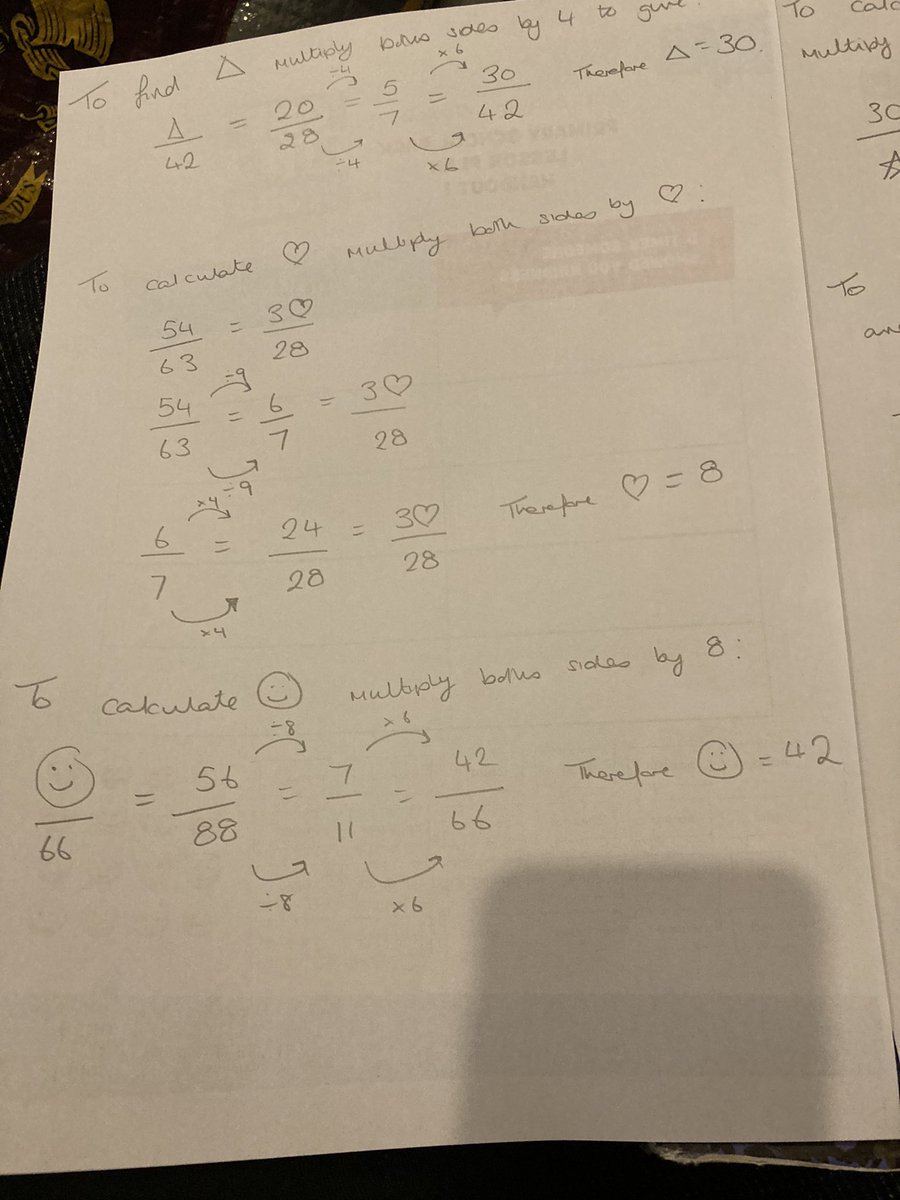 To find △ multiply both sides by 4 to give:
△/42 = 20/28 = 5/7 = 30/42 Therefore △ = 30.
÷4 ×6
÷4 ×6
To calculate ♡ multiply both sides by ♡:
54/63 = 3♡/28
54/63 = 6/7 = 3♡/28
÷9
÷9
6/7 = 24/28 = 3♡/28 Therefore ♡ = 8
×4
×4
To calculate ☺ multiply both sides by 8:
☺/66 = 56/88 = 7/11 = 42/66 Therefore ☺ = 42
÷8 ×6
÷8 ×6
To
multiply
30
To